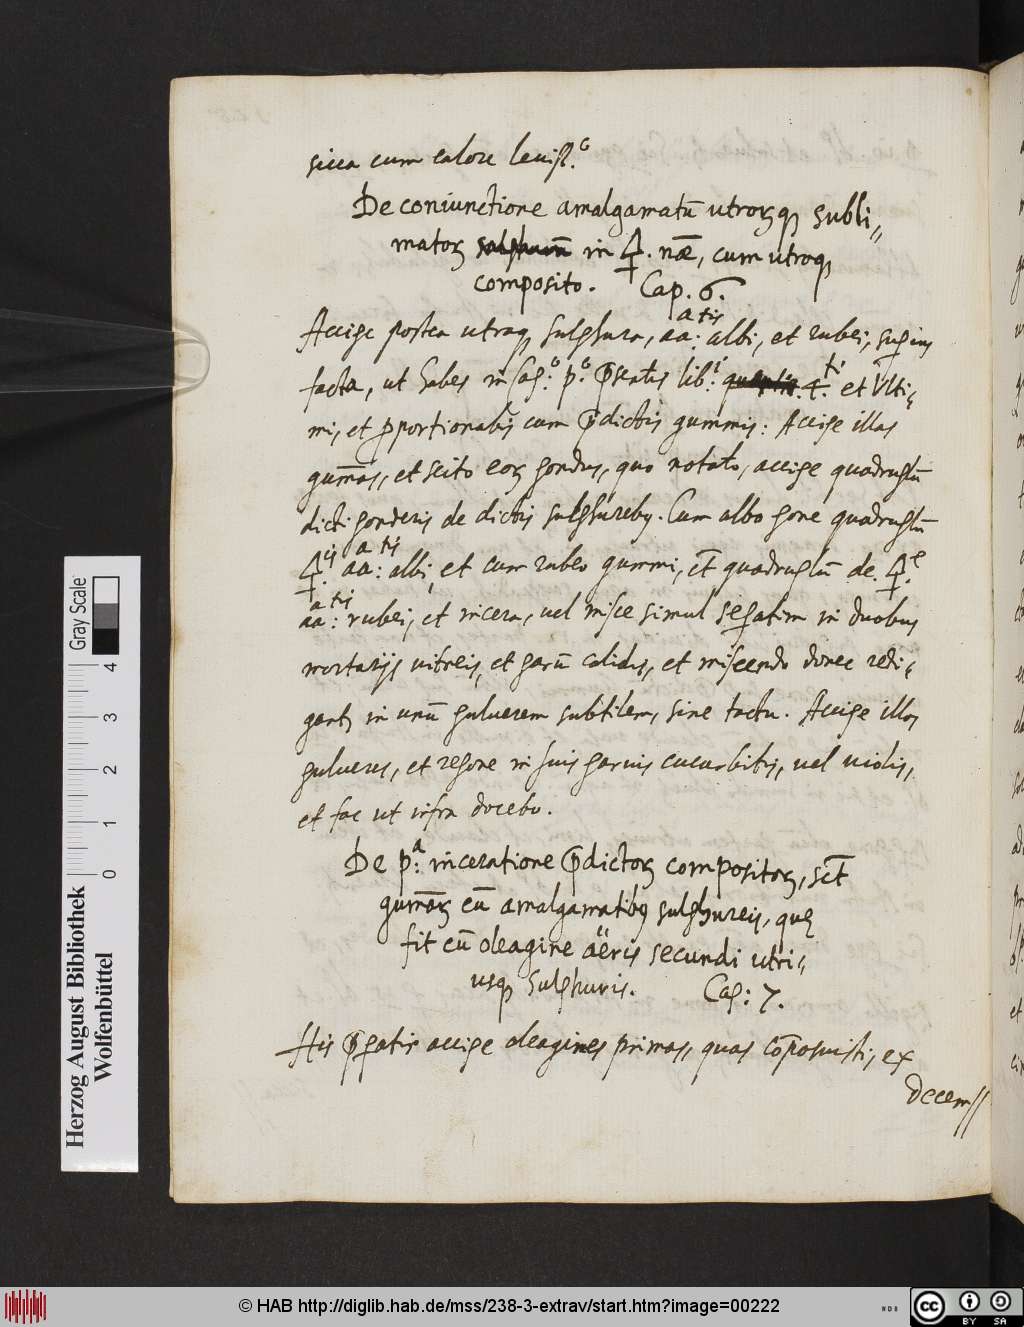 sicca cum calore leuiss.º
De coniunctione amalgamatũ utrorꝫqꝫ subli⸗
matoꝝ in 🜍. næ, cum utroqꝫ
composito. Cap. 6.
Accipe postea utraqꝫ sulphura, aa:ᵃᵗⁱˢ albi, et rubei, superius
facta, ut habes in Cap.º p.º p̃sentis lib:ⁱ 4.ᵗⁱ et Vlti⸗
mi, et ꝓportionabis cum p̃dictis gummis: Accipe illas
gum̃as, et scito eoꝝ pondus, quo notato, accipe quadruplũ
dicti ponderis de dictis sulphureby. Cum albo pone quadruplũ
🜍.ⁱˢ aa:ᵃᵗⁱˢ albi, et cum rubeo gummi, et̃ quadruplũ de 🜍.ᵉ
aa:ᵃᵗⁱ rubei, et incera, uel misce simul separatim in duobus
mortarijs uitreis, et parũ calidis, et miscendo donec redi⸗
gant in unũ puluerem subtilem, sine tactu. Accipe illos
pulueres, et repone in suis paruis cucurbitis, uel uiolis,
et fac ut infra docebo.
De p.ª inceratione p̃dictoꝝ compositoꝝ, sct̃
gum̃aꝝ cũ amalgamatibꝫ sulphureis, que
fit cũ oleagine aëris secundi utri⸗
usqꝫ sulphuris. Cap: 7.
His p̃paratis accipe oleagines primas, quas cõposuisti, ex
decem//
Herzog August Bibliothek
Wolfenbüttel
Gray Scale
0 1 2 3 4
© HAB http://diglib.hab.de/mss/238-3-extrav/start.htm?image=00222
cc BY SA